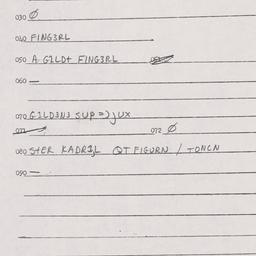 030 Ø
040 FING3RL
050 A G1LD+ FING3RL
060 —
070 G1LD3N3 SUP=)JUX
071 — 072 Ø
080 STER KADR1L QT FIGURN / TONCN
090 —